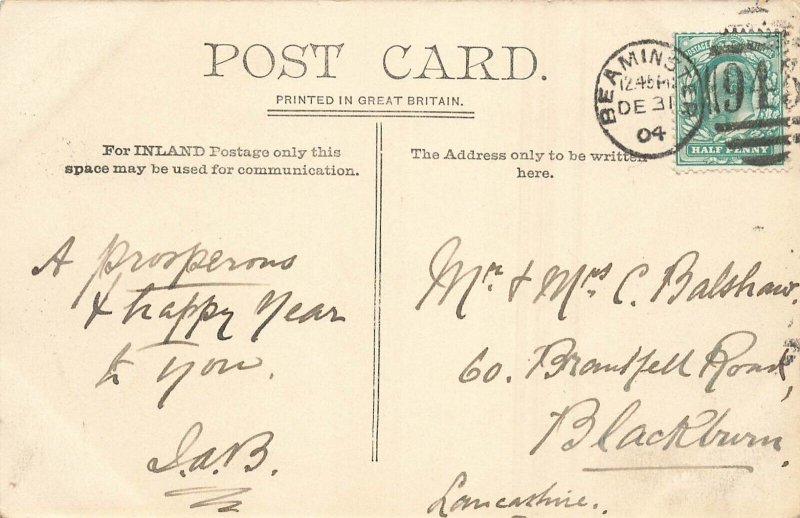 POST CARD.
PRINTED IN GREAT BRITAIN.
For INLAND Postage only this
space may be used for communication.
The Address only to be written
here.
BEAMINSTER
12.45 PM
DE 31
04
POSTAGE
HALF PENNY
A prosperous
& happy Year
to You.
J.A.B.
Mr. & Mrs C. Balshaw.
60. Brantfell Road,
Blackburn,
Lancashire.